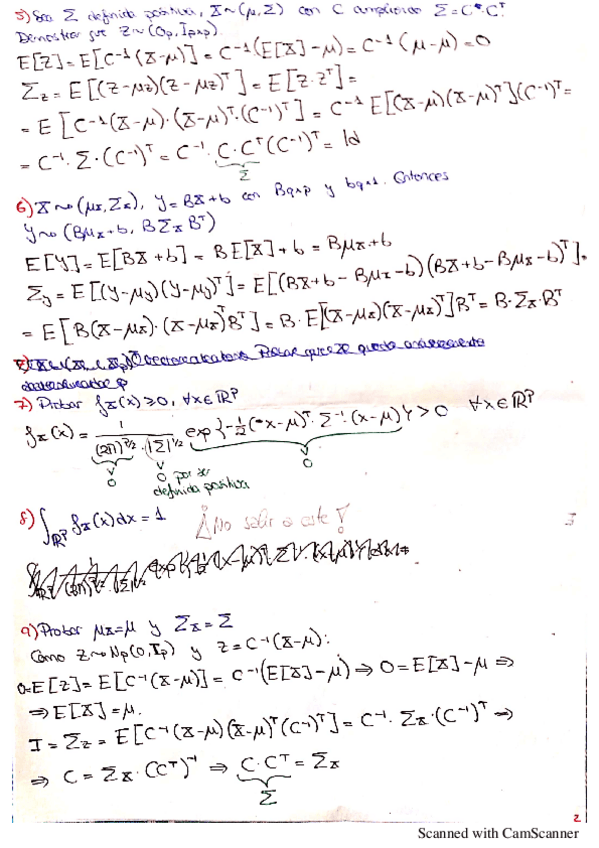 5) Sea Σ definida positiva, X~(μ,Σ) con C cumpliendo Σ=C·Cᵀ.
Demostrar que Z~(0p, Ipxp).
E[Z]=E[C⁻¹(X-μ)]=C⁻¹(E[X]-μ)=C⁻¹(μ-μ)=0
Σz=E[(Z-μz)(Z-μz)ᵀ]=E[Z·Zᵀ]=
=E[C⁻¹(X-μ)·(X-μ)ᵀ·(C⁻¹)ᵀ]=C⁻¹E[(X-μ)(X-μ)ᵀ](C⁻¹)ᵀ=
=C⁻¹·Σ·(C⁻¹)ᵀ=C⁻¹·C·Cᵀ(C⁻¹)ᵀ=Id
Σ
6) X~(μx,Σx), Y=BX+b con Bqxp y bqx1. Entonces
Y~(Bμx+b, BΣxBᵀ)
E[Y]=E[BX+b]=BE[X]+b=Bμx+b
Σy=E[(Y-μy)(Y-μy)ᵀ]=E[(BX+b-Bμx-b)(BX+b-Bμx-b)ᵀ]=
=E[B(X-μx)·(X-μx)ᵀBᵀ]=B·E[(X-μx)(X-μx)ᵀ]Bᵀ=B·Σx·Bᵀ
7) Probar fx(x)≥0, ∀x∈ℝᵖ
fx(x)=1/((2π)^{p/2}·|Σ|^{1/2}) exp{-½(x-μ)ᵀ·Σ⁻¹(x-μ)}>0 ∀x∈ℝᵖ
0
0 por ser
definida positiva
0
8) ∫ℝᵖ fx(x)dx=1 ¡No salir a este!
3
9) Probar μx=μ y Σx=Σ
Como Z~Np(0,Ip) y Z=C⁻¹(X-μ):
0=E[Z]=E[C⁻¹(X-μ)]=C⁻¹(E[X]-μ)⇒0=E[X]-μ⇒
⇒E[X]=μ.
I=Σz=E[C⁻¹(X-μ)(X-μ)ᵀ(C⁻¹)ᵀ]=C⁻¹·Σx·(C⁻¹)ᵀ⇒
⇒C=Σx·(Cᵀ)⁻¹⇒C·Cᵀ=Σx
Σ
2
Scanned with CamScanner